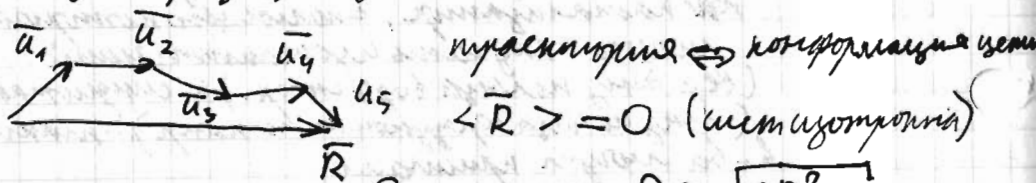 u̅₁ u̅₂ u̅₄
траектория ⇔ конформация цепи
u̅₃ u₅
<R̅> = 0 (сист изотропна)
R̅